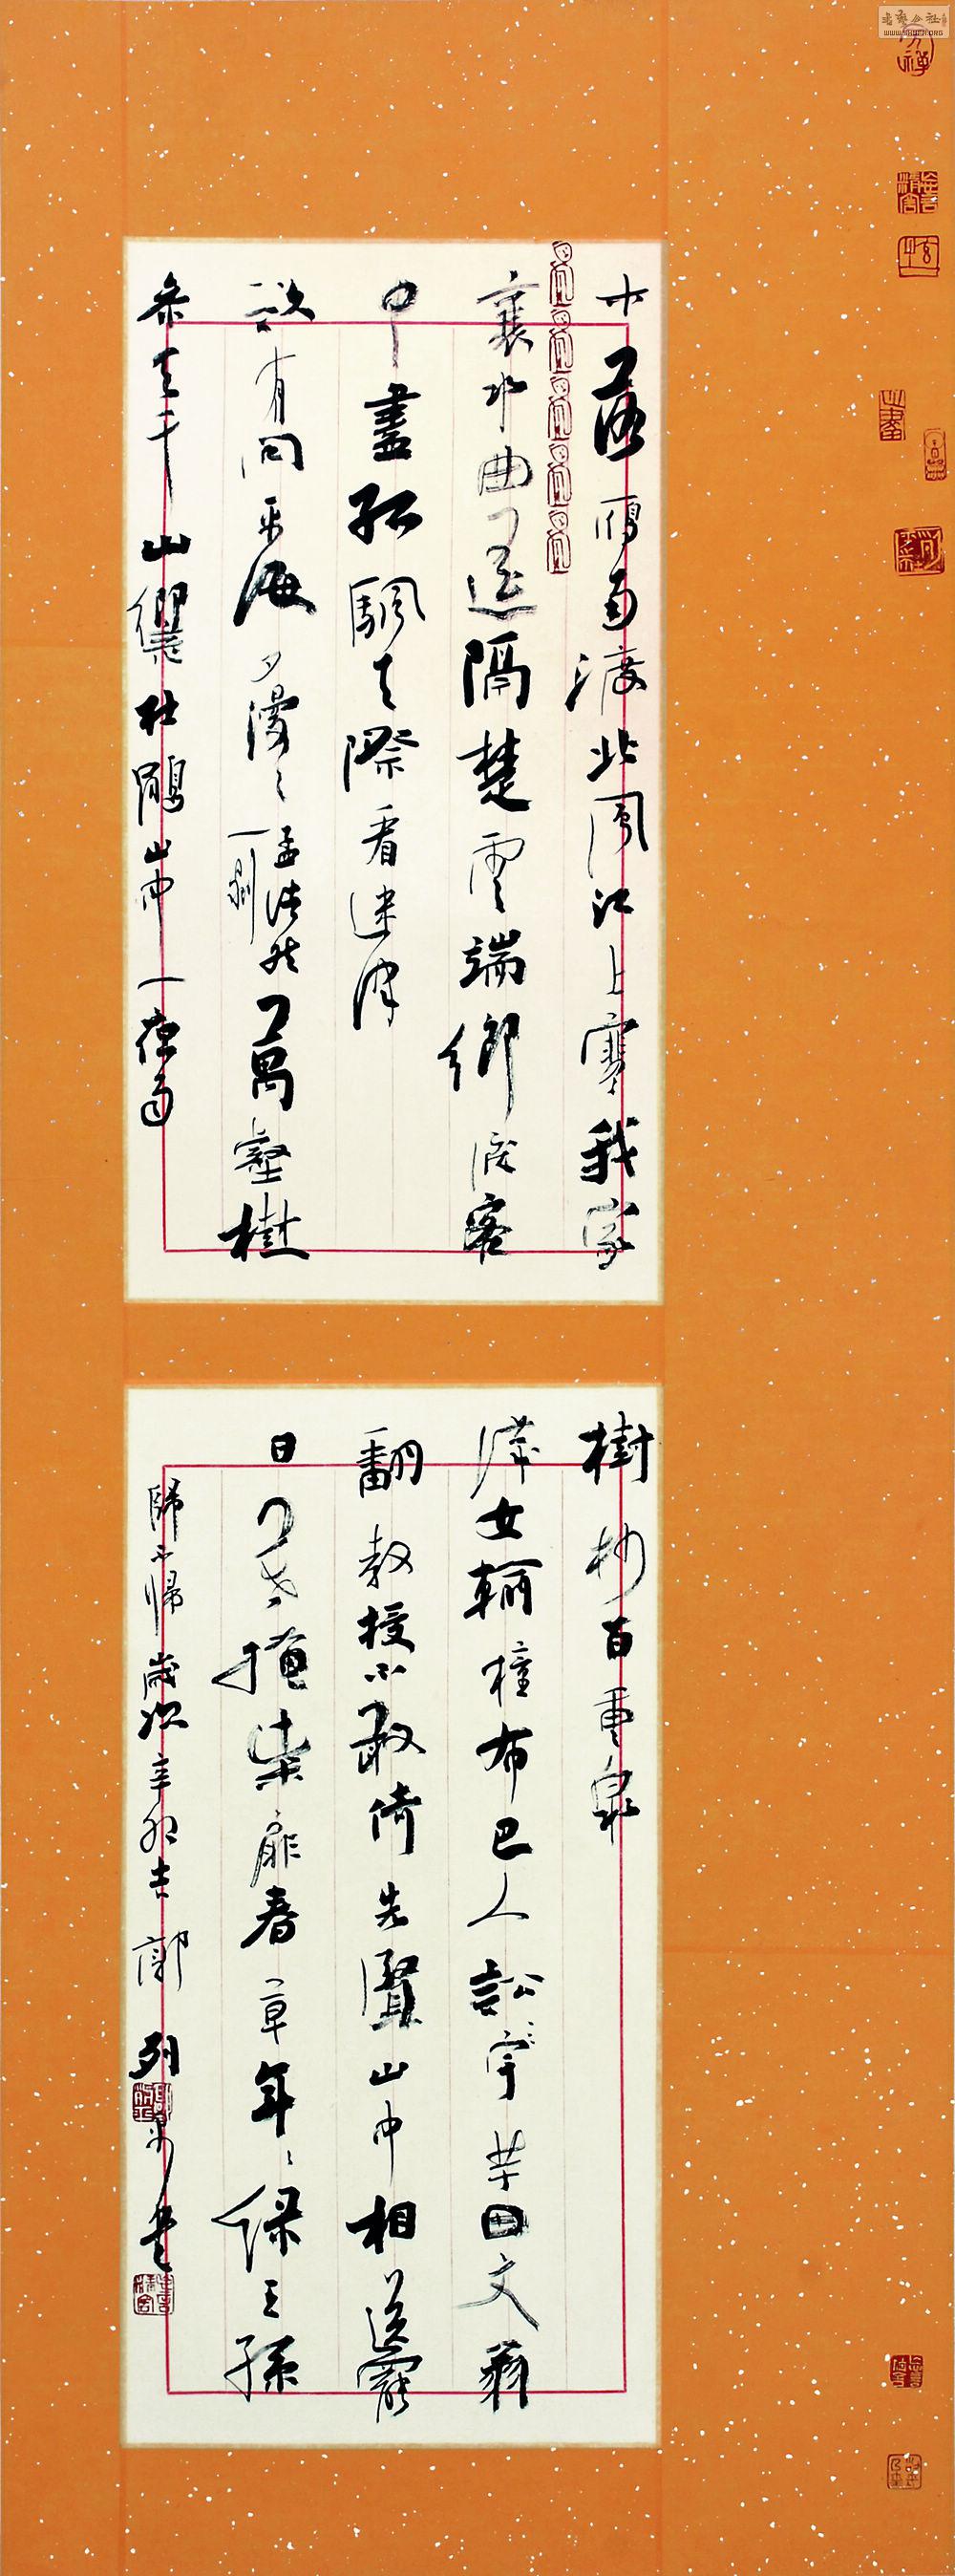 木落雁南渡北風江上寒我家
襄水曲遥隔楚雲端鄉淚客
中盡孤颿天際看迷津
欲有問平海夕漫〻孟浩然一則萬壑樹
參天千山響杜鵑山中一夜雨
樹杪百重泉
漢女輸橦布巴人訟芋田文翁
翻教授不敢倚先賢山中相送罷
日暮掩柴扉春草年〻綠王孫
歸不歸歲次辛卯吉郭列書